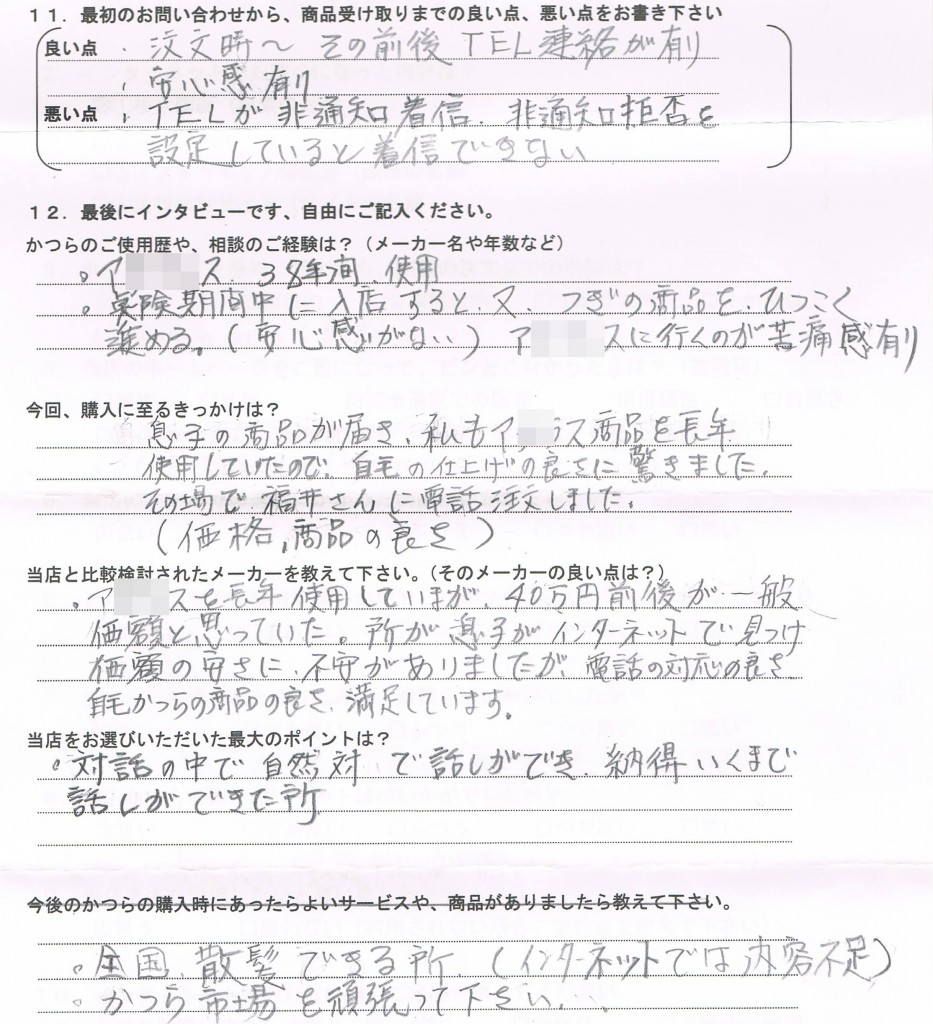 １１．最初のお問い合わせから、商品受け取りまでの良い点、悪い点をお書き下さい
良い点 ・注文時〜 その前後 TEL連絡が有り
・安心感有り
悪い点 ・TELが非通知着信．非通知拒否を
設定していると着信できない
１２．最後にインタビューです、自由にご記入ください。
かつらのご使用歴や、相談のご経験は？（メーカー名や年数など）
。ア ス、38年間、使用
。実険期間中に入店すると、又、つぎの商品を、ひつこく
進める。（安心感がない）ア スに行くのが苦痛感有り
今回、購入に至るきっかけは？
息子の商品が届き、私もア ラス商品を長年
使用していたので、自毛の仕上げの良さに驚きました。
その場で福井さんに電話注文しました。
（価格，商品の良さ）
当店と比較検討されたメーカーを教えて下さい。（そのメーカーの良い点は？）
・ア スを長年使用していまが、40万円前後が一般
価額と思っていた。所が息子がインターネットで見つけ
価額の安さに、不安がありましたが、電話の対応の良さ
自毛かつらの商品の良さ、満足しています。
当店をお選びいただいた最大のポイントは？
。対話の中で自然対 で話しができ、納得いくまで
話しができた所
今後のかつらの購入時にあったらよいサービスや、商品がありましたら教えて下さい。
。全国、散髪できる所．（インターネットでは内容不足）
。かつら市場を頑張って下さい．．．